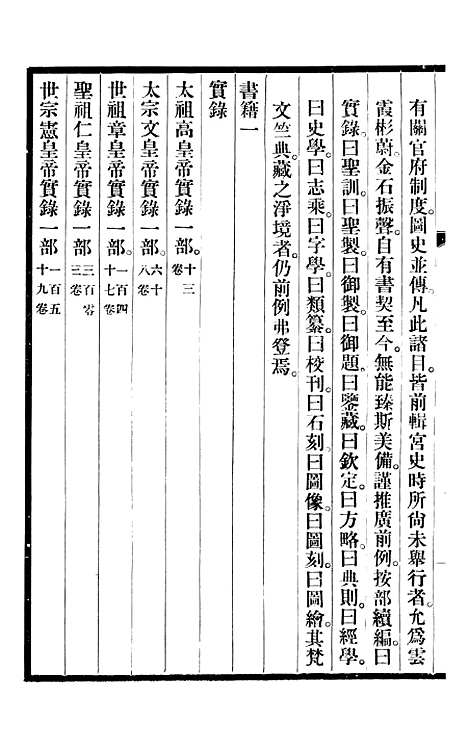 有關官府制度。圖史並傳。凡此諸目。皆前輯宮史時所尚未舉行者。允爲雲
霞彬蔚。金石振聲。自有書契至今。無能臻斯美備。謹推廣前例。按部續編。曰
實錄。曰聖訓。曰聖製。曰御製。曰御題。曰鑒藏。曰欽定。曰方略。曰典則。曰經學。
曰史學。曰志乘。曰字學。曰類纂。曰校刊。曰石刻。曰圖像。曰圖刻。曰圖繪。其梵
文竺典。藏之淨境者。仍前例弗登焉。
書籍一
實錄
太祖高皇帝實錄一部。十三卷
太宗文皇帝實錄一部。六十八卷
世祖章皇帝實錄一部。一百四十七卷
聖祖仁皇帝實錄一部。三百零三卷
世宗憲皇帝實錄一部。一百五十九卷